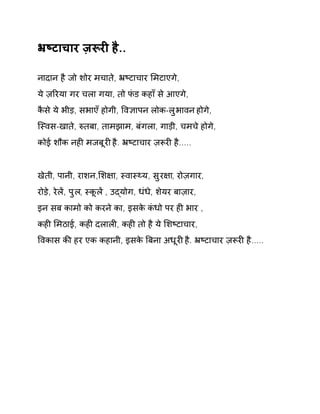 भ्रष्टाचार ज़रूरी है..
नादान है जो शोर मचाते, भ्रष्टाचार मिटाएगे,
ये ज़रिया गर चला गया, तो फंड कहाँ से आएगे,
कैसे ये भीड़, सभाएँ होगी, विज्ञापन लोक-लुभावन होगे,
स्विस-खाते, रुतबा, तामझाम, बंगला, गाड़ी, चमचे होगे,
कोई शौक नही मजबूरी है. भ्रष्टाचार ज़रूरी है.....
खेती, पानी, राशन,शिक्षा, स्वास्थ्य, सुरक्षा, रोज़गार,
रोड़े, रेलें, पुल, स्कूलें , उद्योग, धंधे, शेयर बाज़ार,
इन सब कामो को करने का, इसके कंधो पर ही भार ,
कही मिठाई, कही दलाली, कही तो है ये शिष्टाचार,
विकास की हर एक कहानी, इसके बिना अधूरी है. भ्रष्टाचार ज़रूरी है.....